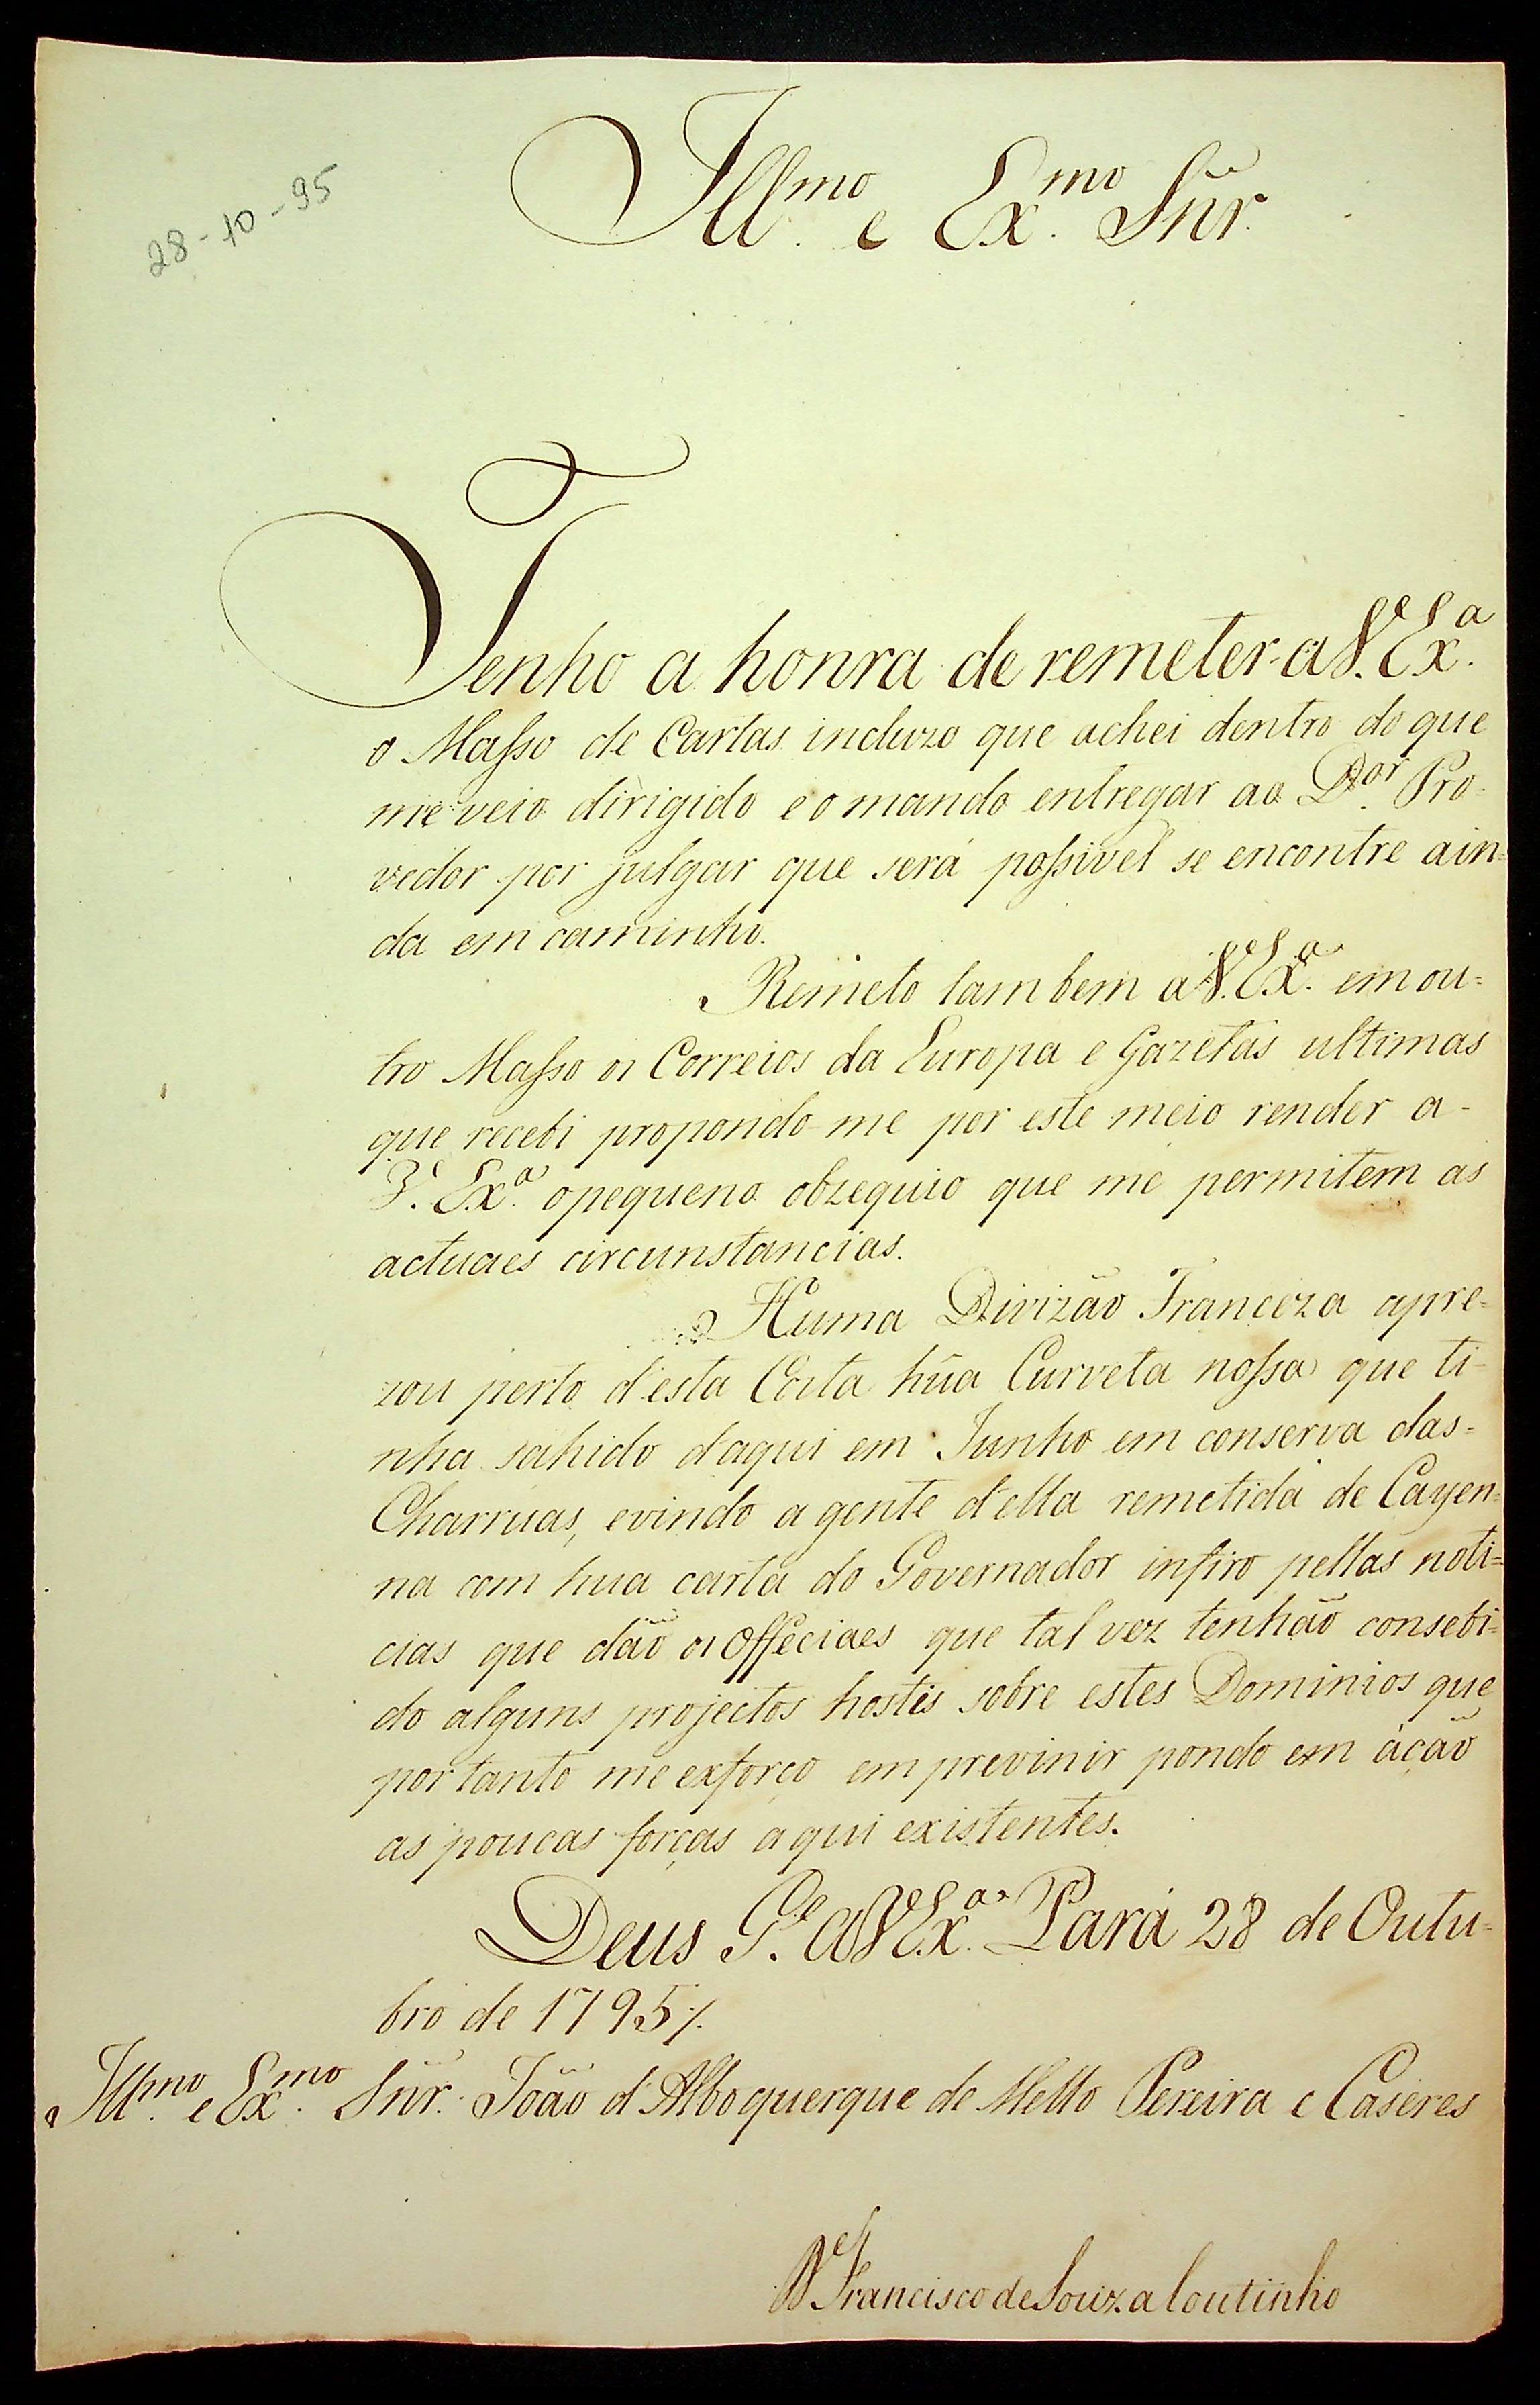 28-10-95
Ill.mo e Ex.mo Snr.
Tenho a honra de remeter a V. Ex.a
o Masso de Cartas incluzo que achei dentro do que
me veio dirigido e o mando entregar ao D.or Pro-
vedor por julgar que será possivel se encontre ain=
da em caminho.
Remeto tambem a V. Ex.a em ou=
tro Masso os Correios da Europa e Gazetas ultimas
que recebi propondo-me por este meio render a-
V. Ex.a o pequeno obzequio que me permitem as
actuaes circunstancias.
Huma Divizão Franceza apre=
zou perto d'esta Costa hũa Curveta nossa que ti-
nha sahido daqui em Junho em conserva das=
Charruas, e vindo a gente d'ella remetida de Cayen=
na com hua carta do Governador infiro pellas noti=
cias que dão os Offeciaes que tal vez tenhão consebi=
do alguns projectos hostis sobre estes Dominios que
por tanto me exforço em previnir pondo em áção
as poucas forças aqui existentes.
Deus G.e a V. Ex.a Pará 28 de Outu=
bro de 1795
Ill.mo e Ex.mo Snr. João d'Alboquerque de Mello Pereira e Caseres
Francisco de Souza Coutinho